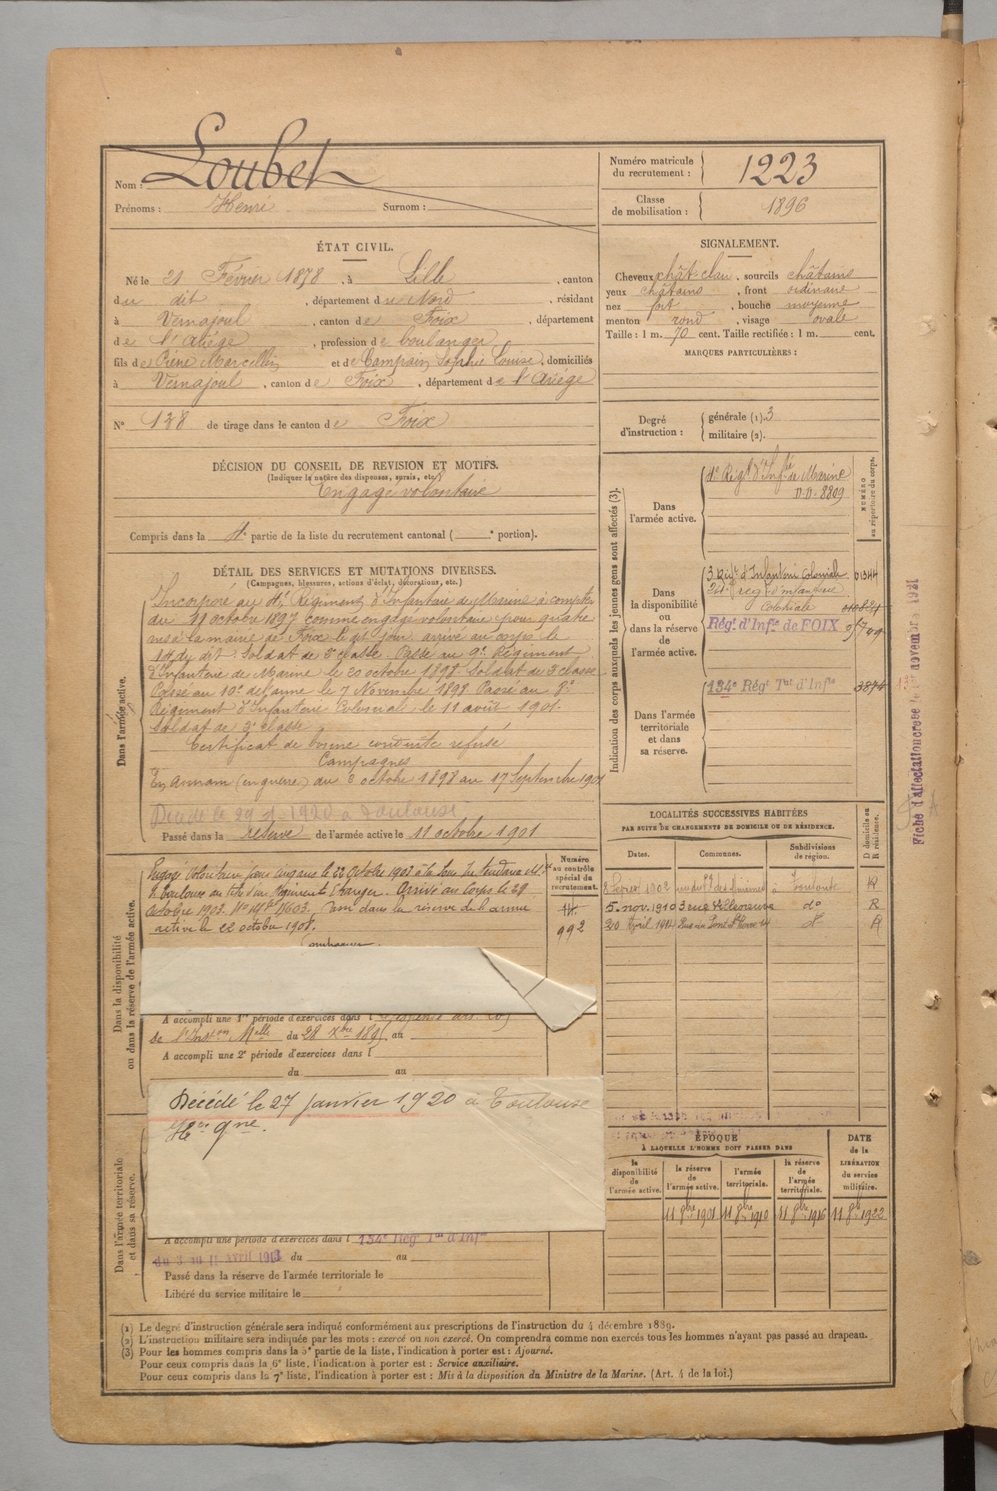 Nom : Loubet
Prénoms : Henri Surnom :
Numéro matricule
du recrutement : 1223
Classe
de mobilisation : 1896
ÉTAT CIVIL.
Né le 21 Février 1878, à Lille, canton
du dit, département du Nord, résidant
à Vernajoul, canton de Foix, département
de l'Ariège, profession de boulanger
fils de Pierre Marcellin et de Camprain Sophie Louise, domiciliés
à Vernajoul, canton de Foix, département de l'Ariège
N° 138 de tirage dans le canton de Foix
SIGNALEMENT.
Cheveux chât-clair, sourcils châtains
yeux châtains, front ordinaire
nez fort, bouche moyenne
menton rond, visage ovale
Taille : 1 m. 70 cent. Taille rectifiée : 1 m. cent.
MARQUES PARTICULIÈRES :
Degré
d'instruction :
générale (1). 3
militaire (2).
DÉCISION DU CONSEIL DE REVISION ET MOTIFS.
(Indiquer la nature des dispenses, sursis, etc.)
Engagé volontaire
Compris dans la 4e partie de la liste du recrutement cantonal ( e portion).
DÉTAIL DES SERVICES ET MUTATIONS DIVERSES.
(Campagnes, blessures, actions d'éclat, décorations, etc.)
Dans l'armée active.
Incorporé au 4e Régiment d'Infanterie de Marine à compter
du 11 octobre 1897 comme engagé volontaire pour quatre
ans à la mairie de Foix le dit jour arrivé au corps le
14 du dit. Soldat de 2e classe. Passé au 9e Régiment
d'Infanterie de Marine le 20 octobre 1898 Soldat de 2e classe
Passé au 10e de l'arme le 7 Novembre 1899 Passé au 8e
Régiment d'Infanterie Colonial le 11 août 1901.
Soldat de 2e classe
Certificat de bonne conduite refusé
Campagnes
En Annam (en guerre) du 3 octobre 1898 au 17 Septembre 1901
Décédé le 27 1-1920 à Toulouse
Passé dans la réserve de l'armée active le 11 octobre 1901
Indication des corps auxquels les jeunes gens sont affectés (3).
Dans
l'armée active.
4e Régt d'Infie de Marine
NUMÉRO
au répertoire du corps.
Dans
la disponibilité
ou
dans la réserve
de
l'armée active.
3 Régt d'Infanterie Coloniale 01344
regt d'infanterie
Coloniale
Régt d'Infie de FOIX
Dans l'armée
territoriale
et dans
sa réserve.
134e Régt Tal d'Infie
Fiche d'affectation novembre 1931
LOCALITÉS SUCCESSIVES HABITÉES
PAR SUITE DE CHANGEMENTS DE DOMICILE OU DE RÉSIDENCE.
Dates. Communes. Subdivisions
de région.
D domicile ou
R résidence.
8 Février 1902 Toulouse R
5. nov. 1910 3 rue Villeneuve do R
30 Avril 1914 do R
Dans la disponibilité
ou dans la réserve de l'armée active.
Numéro
au contrôle
spécial du
recrutement.
992
Engagé Volontaire pour cinq ans le 22 Octobre 1903 à la Sous Intendance Mre
de Toulouse au titre d'un Régiment Etranger. Arrivé au Corps le 29
Octobre 1903. Passé dans la réserve de l'armée
active le 22 octobre 1908.
Campagnes
A accompli une 1re période d'exercices dans l
du 28 au
A accompli une 2e période d'exercices dans l
du au
Décédé le 27 janvier 1920 à Toulouse
Hte Gne.
Dans l'armée territoriale
et dans sa réserve.
A accompli une période d'exercices dans l 134e Régt Tal d'Infie
du 3 au 11 AVRIL 1913 du au
Passé dans la réserve de l'armée territoriale le
Libéré du service militaire le
ÉPOQUE
À LAQUELLE L'HOMME DOIT PASSER DANS
la
disponibilité
de
l'armée active.
la réserve
de
l'armée active.
l'armée
territoriale.
la réserve
de
l'armée
territoriale.
DATE
de la
LIBÉRATION
du service
militaire.
11 8bre 1901 11 8bre 1910 11 8bre 1916 11 8bre 1922
(1) Le degré d'instruction générale sera indiqué conformément aux prescriptions de l'instruction du 4 décembre 1889.
(2) L'instruction militaire sera indiquée par les mots : exercé ou non exercé. On comprendra comme non exercés tous les hommes n'ayant pas passé au drapeau.
(3) Pour les hommes compris dans la 5e partie de la liste, l'indication à porter est : Ajourné.
Pour ceux compris dans la 6e liste, l'indication à porter est : Service auxiliaire.
Pour ceux compris dans la 7e liste, l'indication à porter est : Mis à la disposition du Ministre de la Marine. (Art. 4 de la loi.)